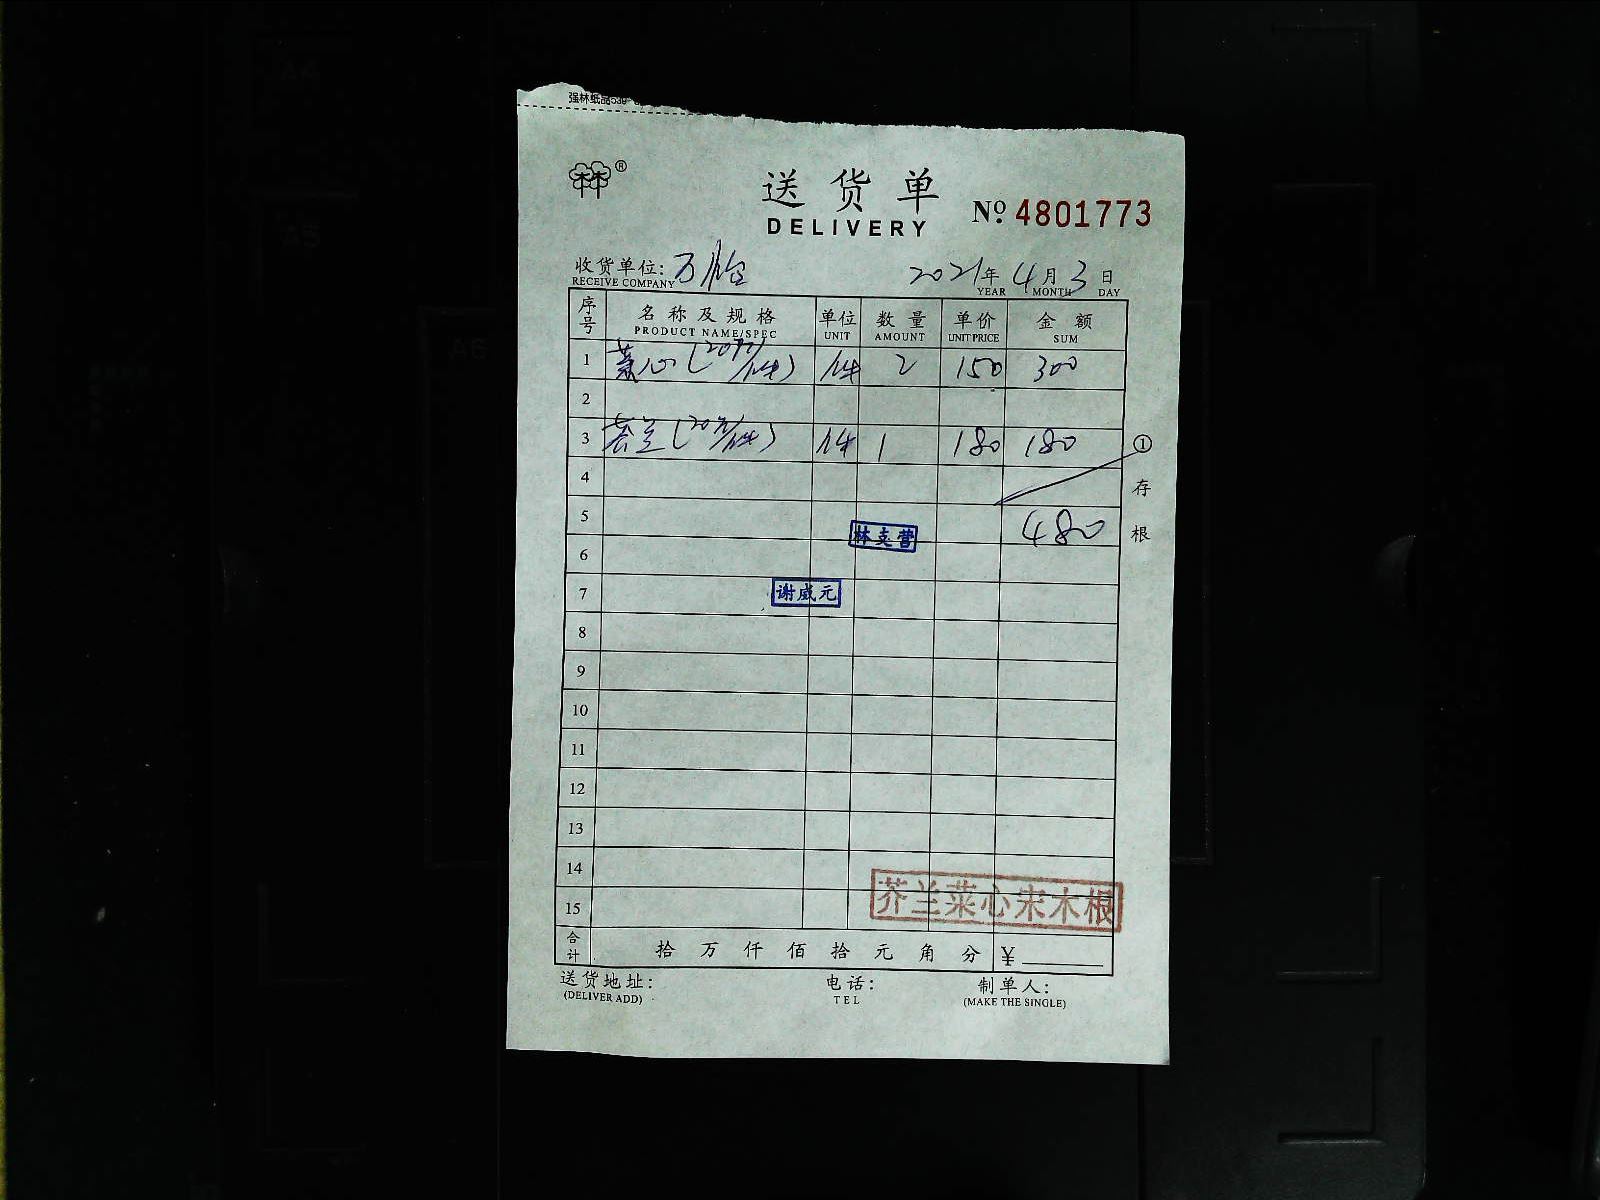 强林纸品539-
®
送货单
DELIVERY
№ 4801773
收货单位: 万怡 2021年4月3日
RECEIVE COMPANY YEAR MONTH DAY
序号 名称及规格 单位 数量 单价 金额
PRODUCT NAME/SPEC UNIT AMOUNT UNIT PRICE SUM
1 菜心(20斤/件) 件 2 150 300
2
3 芥兰(20斤/件) 件 1 180 180
4
5 480
6
7
8
9
10
11
12
13
14
15
① 存根
林支营
谢威元
芥兰菜心宋木根
合计 拾万仟佰拾元角分 ¥
送货地址: 电话: 制单人:
(DELIVER ADD) TEL (MAKE THE SINGLE)
A5
A6